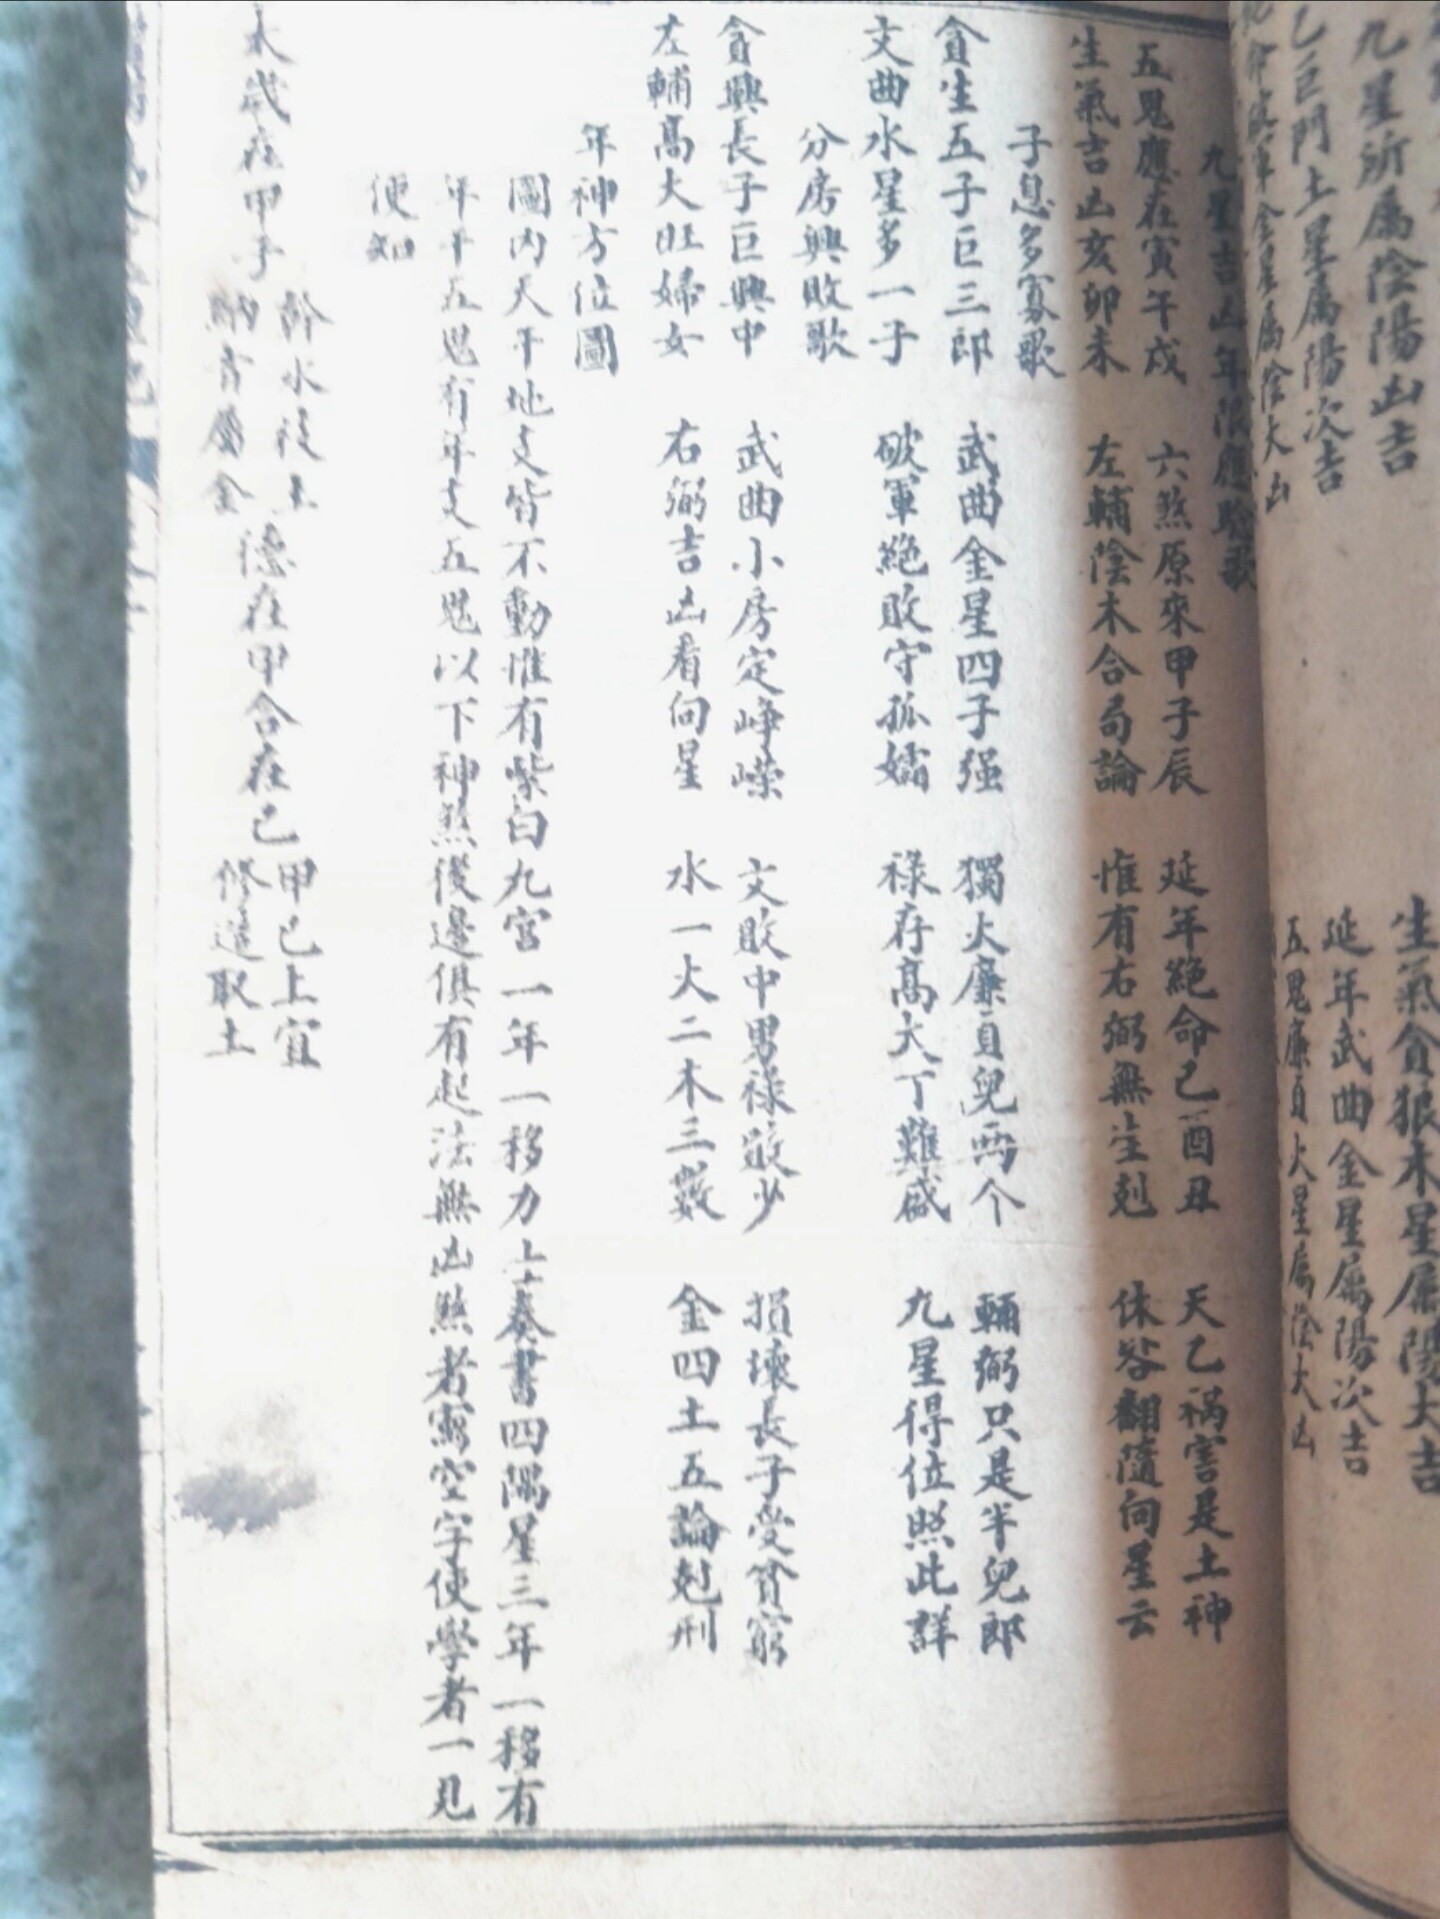 九星所屬陰陽凶吉
生氣貪狼木星屬陽大吉
乙巨門土星屬陽次吉
延年武曲金星屬陽次吉
金星屬陰大凶
五鬼廉貞火星屬陰大凶
九星吉凶年限應驗歌
五鬼應在寅午戌 六煞原來甲子辰 延年絕命巳酉丑 天乙禍害是土神
生氣吉凶亥卯未 左輔陰木合局論 惟有右弼無生剋 休咎翻隨向星云
子息多寡歌
貪生五子巨三郎 武曲金星四子强 獨火廉貞兒兩个 輔弼只是半兒郎
文曲水星多一子 破軍絕敗守孤孀 祿存高大丁難盛 九星得位照此詳
分房興敗歌
貪興長子巨興中 武曲小房定崢嶸 文敗中男祿敗少 損壞長子受貧窮
左輔高大旺婦女 右弼吉凶看向星 水一火二木三數 金四土五論剋刑
年神方位圖
圖內天干地支皆不動惟有紫白九宮一年一移力士奏書四隅星三年一移有
年干五鬼有年支五鬼以下神煞後邊俱有起法無凶煞者寫空字使學者一見
便知
太歲在甲子 幹水枝土 納音屬金 德在甲合在己 甲己上宜 修造取土